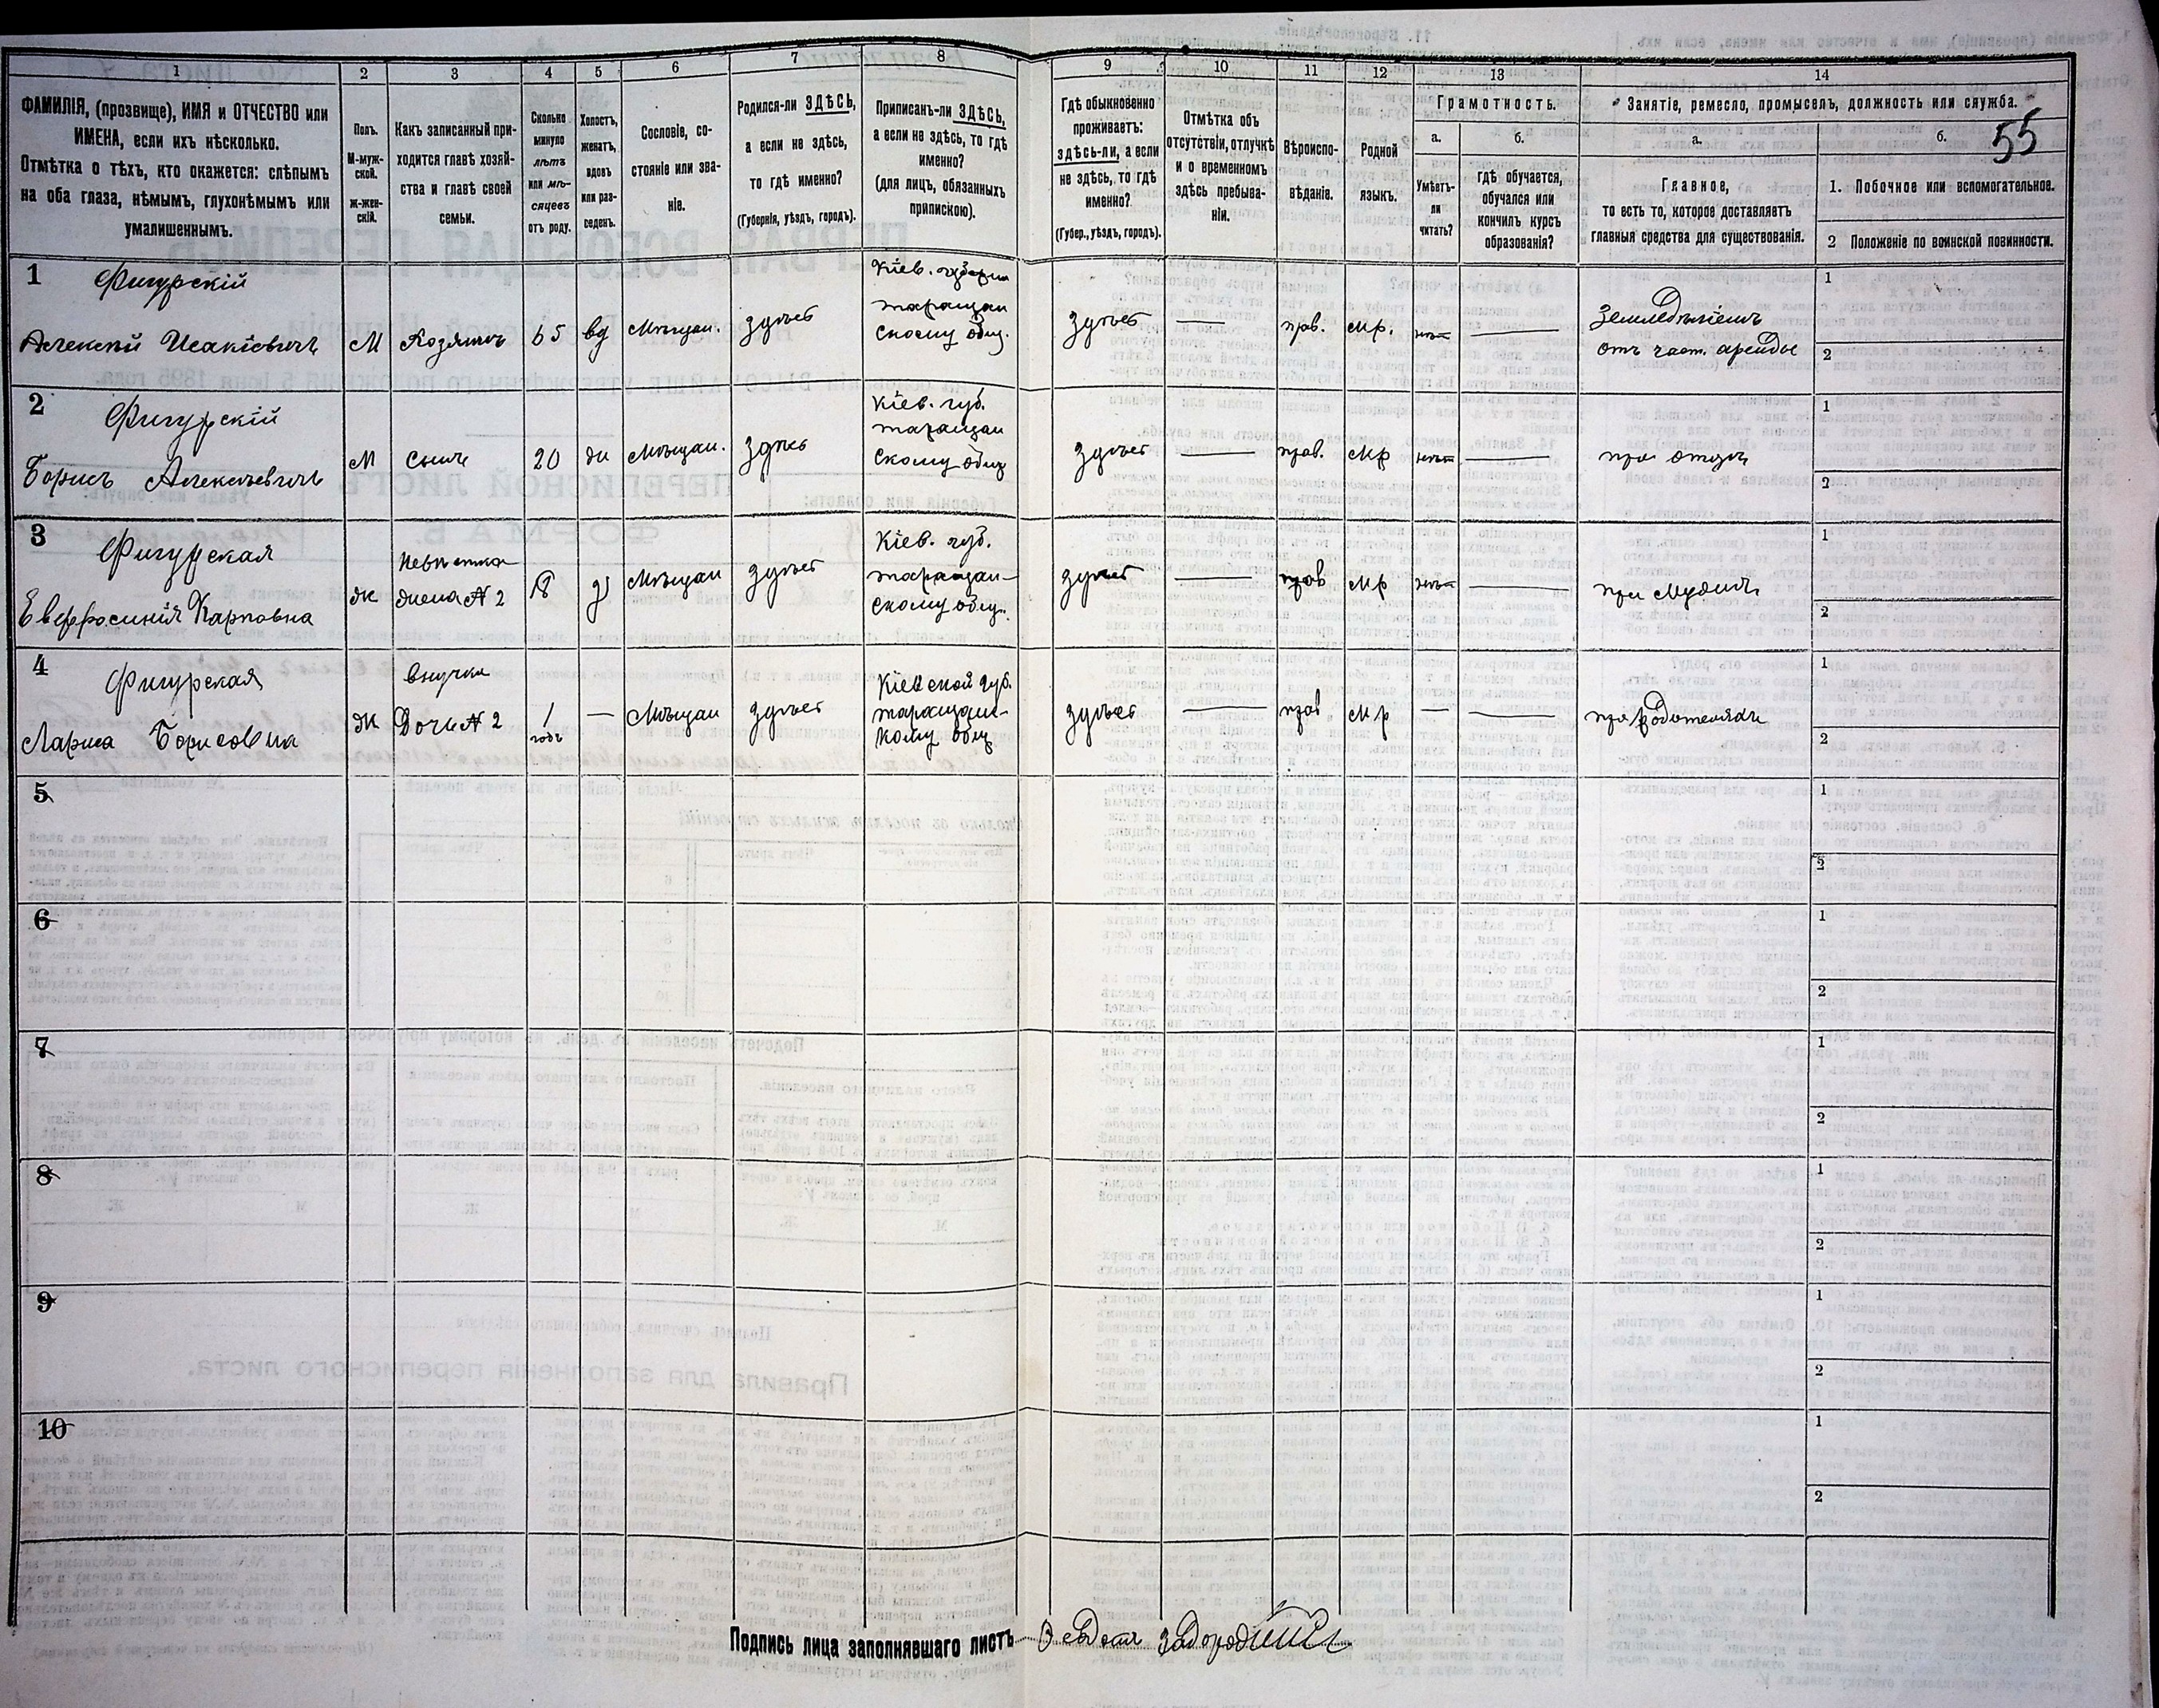 1
2
3
4
5
6
7
8
9
10
11
12
13
14
ФАМИЛІЯ, (прозвище), ИМЯ и ОТЧЕСТВО или
ИМЕНА, если ихъ нѣсколько.
Отмѣтка о тѣхъ, кто окажется: слѣпымъ
на оба глаза, нѣмымъ, глухонѣмымъ или
умалишеннымъ.
Полъ.
М-муж-
ской.
Ж-жен-
скій.
Какъ записанный при-
ходится главѣ хозяй-
ства и главѣ своей
семьи.
Сколько
минуло
лѣтъ
или мѣ-
сяцевъ
отъ роду.
Холостъ,
женатъ,
вдовъ
или раз-
веденъ.
Сословіе, со-
стояніе или зва-
ніе.
Родился-ли ЗДѢСЬ,
а если не здѣсь,
то гдѣ именно?
(Губернія, уѣздъ, городъ).
Приписанъ-ли ЗДѢСЬ,
а если не здѣсь, то гдѣ
именно?
(для лицъ, обязанныхъ
припискою).
Гдѣ обыкновенно
проживаетъ:
здѣсь-ли, а если
не здѣсь, то гдѣ
именно?
(Губер., уѣздъ, городъ).
Отмѣтка объ
отсутствіи, отлучкѣ
и о временномъ
здѣсь пребыва-
ніи.
Вѣроиспо-
вѣданіе.
Родной
языкъ.
Грамотность.
а.
Умѣетъ-
ли
читать?
б.
гдѣ обучается,
обучался или
кончилъ курсъ
образованія?
Занятіе, ремесло, промыселъ, должность или служба.
55
а.
Главное,
то есть то, которое доставляетъ
главныя средства для существованія.
б.
1. Побочное или вспомогательное.
2 Положеніе по воинской повинности.
1 Фигурскій
Алексѣй Исакіевичъ
М
Хозяинъ
65
вд
Мѣщан.
здѣсь
Кіев. губерн
таращан
скому общ.
здѣсь
—
прав.
мр.
нѣтъ
—
Земледѣліемъ
отъ част. аренды
1
2
2 Фигурскій
Борисъ Алексѣевичъ
М
Сынъ
20
жн
Мѣщан.
здѣсь
Кіев. губ.
таращан
скому общ
здѣсь
—
прав.
мр
нѣтъ
—
при отцѣ
1
2
3 Фигурская
Евфросинія Карповна
Ж
Невѣстка
жена № 2
18
з
Мѣщан
здѣсь
Кіев. губ.
таращан-
скому общ.
здѣсь
—
прав
мр
нѣтъ
—
при мужѣ
1
2
4 Фигурская
Лариса Борисовна
Ж
внучка
Дочь № 2
1
годъ
—
Мѣщан
здѣсь
Кіевской губ.
таращанс-
кому общ
здѣсь
—
прав
мр
—
—
при родителяхъ
1
2
5
1
2
6
1
2
7
1
2
8
1
2
9
1
2
10
1
2
Подпись лица заполнявшаго листъ